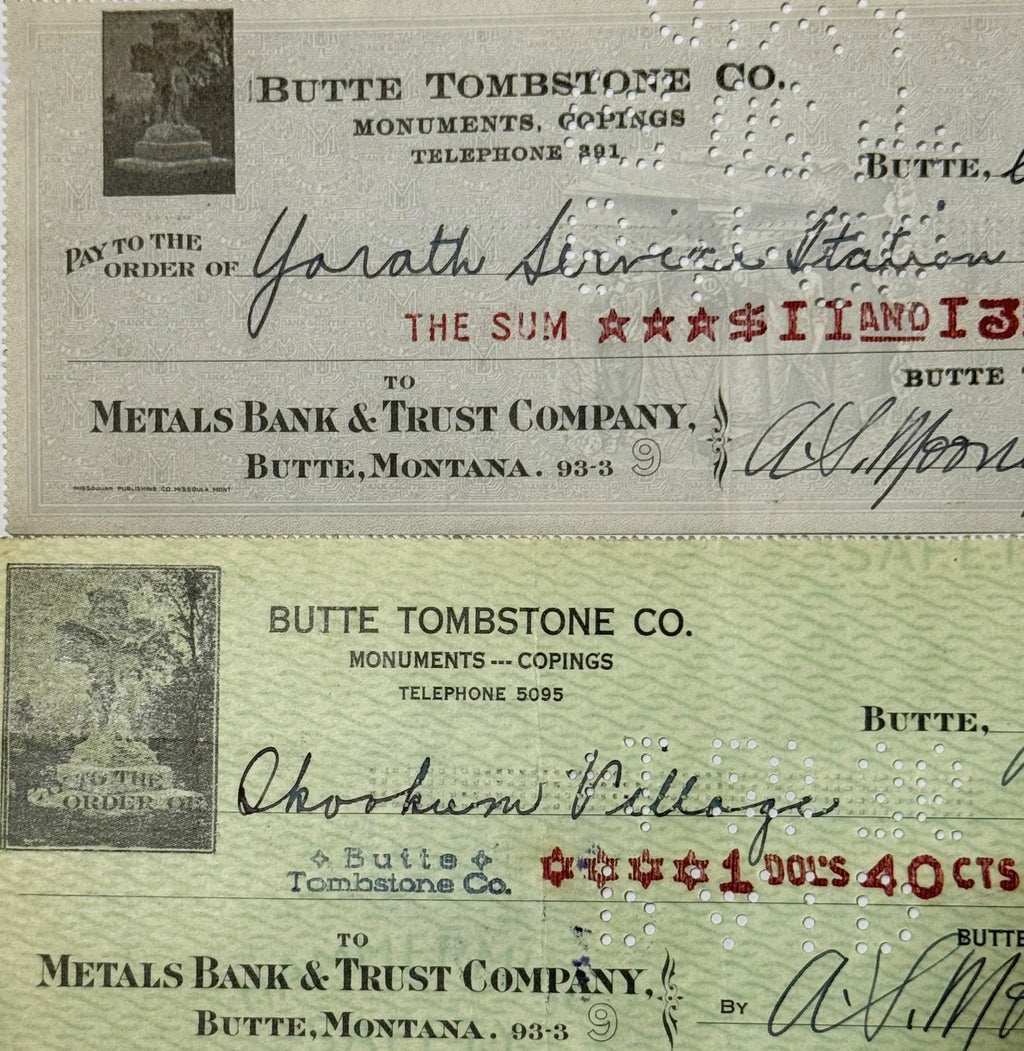 BUTTE TOMBSTONE CO.
MONUMENTS, COPINGS
TELEPHONE 391
BUTTE,
PAY TO THE
ORDER OF Yorath Service Station
THE SUM ★★★$11 AND 13
BUTTE
TO
METALS BANK & TRUST COMPANY,
BUTTE, MONTANA. 93-3 9
A.S. Moon
MISSOULIAN PUBLISHING CO. MISSOULA, MONT
SAFE
BUTTE TOMBSTONE CO.
MONUMENTS --- COPINGS
TELEPHONE 5095
BUTTE,
PAY TO THE
ORDER OF Skookum Village
Butte
Tombstone Co.
1 DOL'S 40 CTS
BUTTE
TO
METALS BANK & TRUST COMPANY,
BUTTE, MONTANA. 93-3 9
BY A.S. Mo